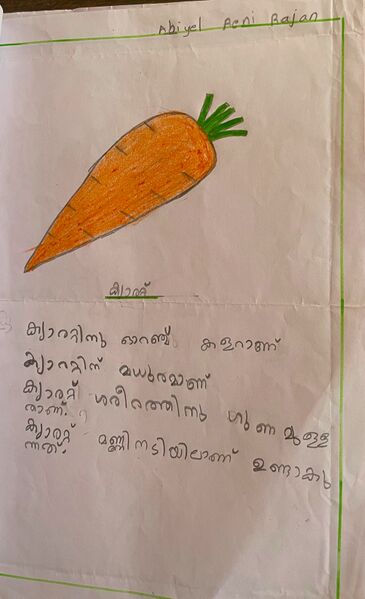 Abiyel Reni Rajan
ക്യാരറ്റ്
ക്യാരറ്റിനു ഓറഞ്ച് കളറാണ്
ക്യാരറ്റിന് മധുരമാണ്
ക്യാരറ്റ് ശരീരത്തിനു ഗുണമുള്ള
താണ്.
ക്യാരറ്റ് മണ്ണിനടിയിലാണ് ഉണ്ടാകു
ന്നത്.